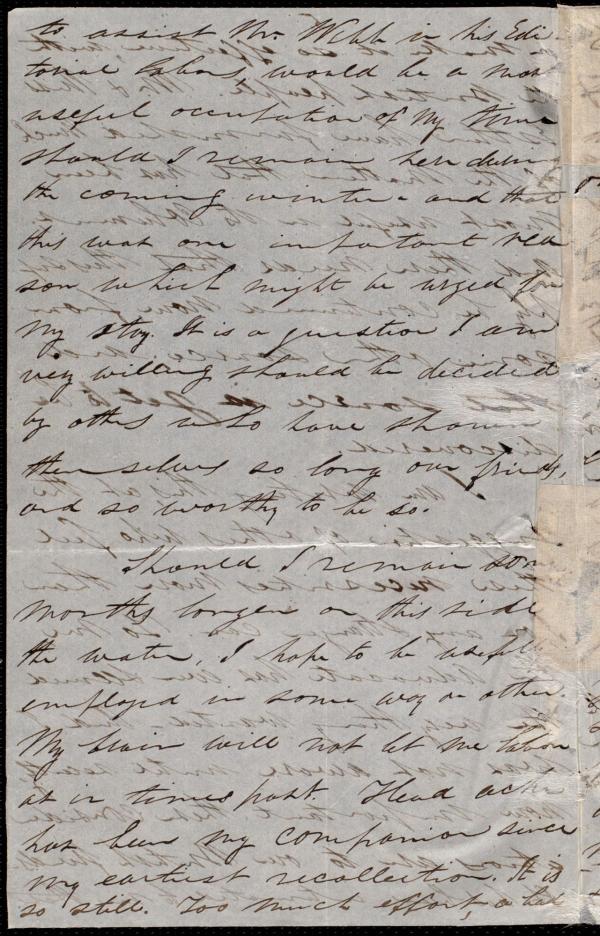 to assist Mr. Webb in his Edi-
torial labors, would be a most
useful occupation of my time
should I remain here during
the coming winter - and that
this was one important rea
son which might be urged for
my stay. It is a question I am
very willing should be decided
by others who have shown
themselves so long our friends,
and so worthy to be so.
Should I remain some
months longer on this side
the water, I hope to be usefully
employed in some way or other.
My brain will not let me labor
as in times past. Head ache
has been my companion since
my earliest recollection. It is
so still. Too much effort, a hat